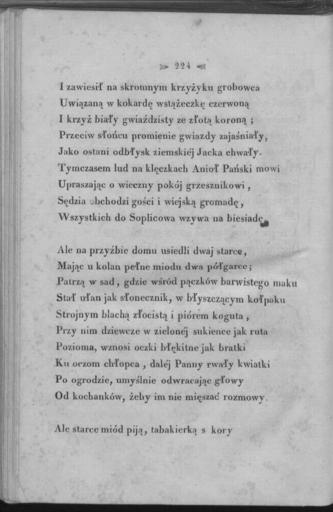 224
I zawiesił na skromnym krzyżyku grobowca
Uwiązaną w kokardę wstążeczkę czerwoną
I krzyż biały gwiaździsty ze złotą koroną ;
Przeciw słońcu promienie gwiazdy zajaśniały,
Jako ostani odbłysk ziemskiéj Jacka chwały.
Tymczasem lud na klęczkach Anioł Pański mowi
Upraszając o wieczny pokój grzesznikowi ,
Sędzia obchodzi gości i wiejską gromadę,
Wszystkich do Soplicowa wzywa na biesiadę
Ale na przyźbie domu usiedli dwaj starce,
Mając u kolan pełne miodu dwa półgarce;
Patrzą w sad , gdzie wśród pączków barwistego maku
Stał ułan jak słonecznik, w błyszczącym kołpaku
Strojnym blachą złocistą i piórem koguta ,
Przy nim dziewcze w zielonéj sukience jak ruta
Pozioma, wznosi oczki błękitne jak bratki
Ku oczom chłopca , daléj Panny rwały kwiatki
Po ogrodzie, umyślnie odwracając głowy
Od kochanków, żeby im nie mięszać rozmowy.
Ale starce miód piją, tabakierką s kory